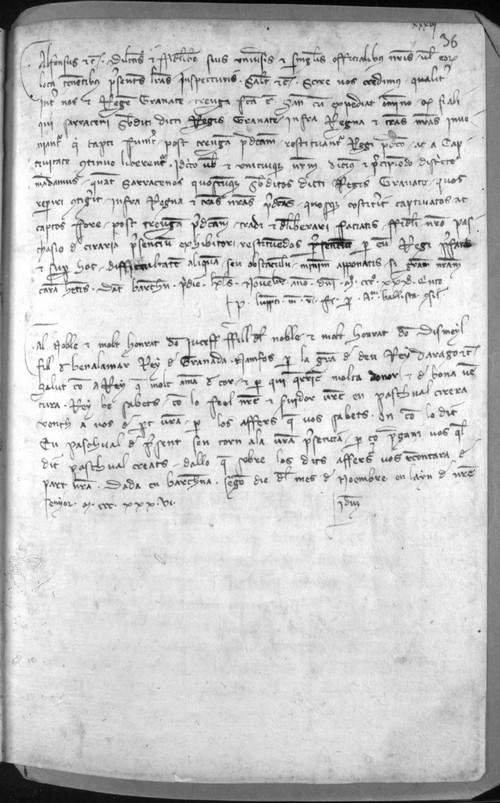 xxxvi
36
Alfonsus etc. Dilectis et fidelibus suis universis et singulis officialibus nostris vel eorum
loca tenentibus presentes litteras inspecturis. Salutem etc. Scire vos credimus qualiter
inter nos et Regem Granate treuga facta est cum expediat omnino quod si aliqui
qui sarraceni subditi dicti Regis Granate infra Regna et terras nostras
capti fuerint post treugam predictam restituantur Regi predicto ac a cap
tivitate continuo liberentur. Idcirco vobis et unicuique vestrum dicimus et precipiendo districte
mandamus quatenus sarracenos quoscumque subditos dicti Regis Granate quos
reperiri contigerit infra Regna et terras nostras predictas quosque constiterit captivatos aut
captos fore post treugam predictam tradi et deliberari faciatis fideli nostro Pas
chasio de Ciraria presentium exhibitori restituendos per eum Regi prefato
et super hoc difficultatem aliquam seu obstaculum minime apponatis si gratiam nostram
caram habetis. Data Barchinone pridie kalendas Novembris anno domini Mº CCCº XXXº quinto
Al Noble e molt honrat do Juceff fill del noble e molt honrat do Dismeyl
fill de Benalamar Rey de Granada. Namfos per la gracia de deu Rey Darago etc.
Salut com a Rey que molt amam de cor e per qui querriem molta honor e de bona ven
tura. Rey be sabets com lo feel nostre e servidor vostre en Paschual Cirera
vench a nos de part vostra per los affers que vos sabets. On com lo dit
En Paschual de present sen torn a la vostra presencia per ço pregam vos quel
dit Paschual creats dallo que sobre los dits affers vos recontara de
part nostra. Dada en Barchinona segon die del mes de Noembre en layn de nostre
senyor M CCC XXX VI.
Idem